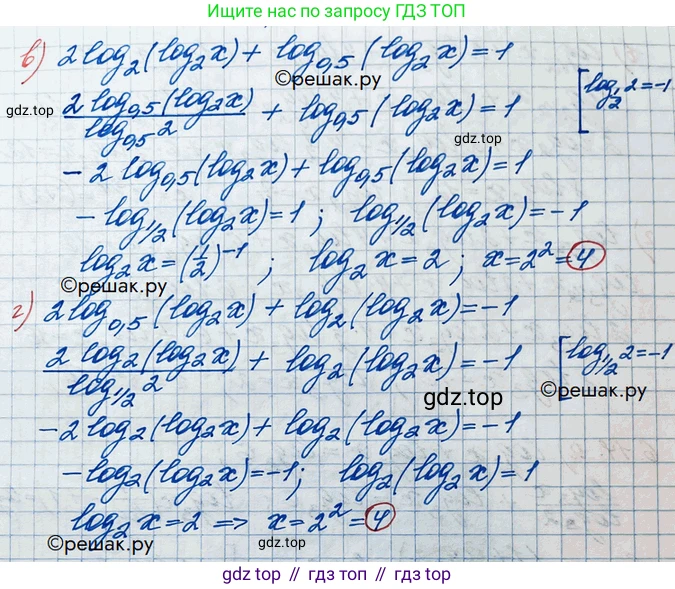 Ищите нас по запросу ГДЗ ТОП
в) 2 log₂(log₂x) + log₀,₅(log₂x) = 1
©решак.ру
gdz.top (2 log₀,₅(log₂x))/(log₀,₅2) + log₀,₅(log₂x) = 1 [log₁/₂2 = -1
gdz.top
- 2 log₀,₅(log₂x) + log₀,₅(log₂x) = 1
- log₁/₂(log₂x) = 1 ; log₁/₂(log₂x) = -1
log₂x = (1/2)⁻¹ ; log₂x = 2 ; x = 2² = 4
©решак.ру
г) 2 log₀,₅(log₂x) + log₂(log₂x) = -1
(2 log₂(log₂x))/(log₁/₂2) + log₂(log₂x) = -1 [log₁/₂2 = -1
©решак.ру
gdz.top
-2 log₂(log₂x) + log₂(log₂x) = -1
- log₂(log₂x) = -1; log₂(log₂x) = 1
log₂x = 2 => x = 2² = 4
©решак.ру gdz.top
gdz top // гдз топ // gdz.top